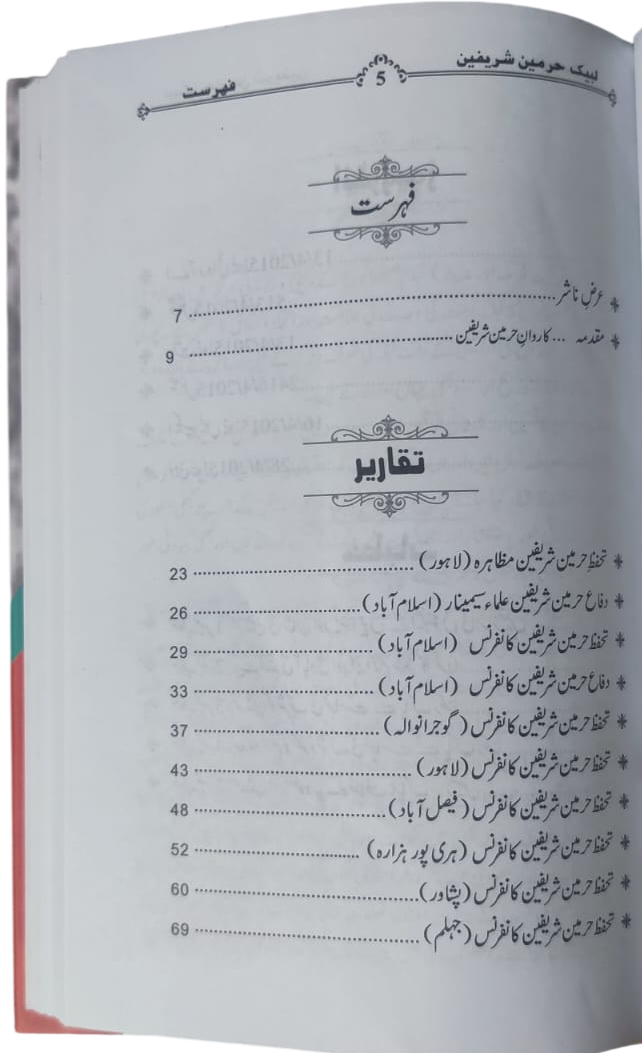 لبیک حرمین شریفین 5 فہرست
فہرست
عرضِ ناشر ........................ 7
مقدمہ ... کاروانِ حرمین شریفین ........................ 9
تقاریر
تحفظِ حرمین شریفین مظاہرہ (لاہور) ........................ 23
دفاع حرمین شریفین علماء سیمینار (اسلام آباد) ........................ 26
تحفظِ حرمین شریفین کانفرنس (اسلام آباد) ........................ 29
دفاع حرمین شریفین کانفرنس (اسلام آباد) ........................ 33
تحفظ حرمین شریفین کانفرنس (گوجرانوالہ) ........................ 37
تحفظ حرمین شریفین کانفرنس (لاہور) ........................ 43
تحفظ حرمین شریفین کانفرنس (فیصل آباد) ........................ 48
تحفظ حرمین شریفین کانفرنس (ہری پور ہزارہ) ........................ 52
تحفظ حرمین شریفین کانفرنس (پشاور) ........................ 60
تحفظ حرمین شریفین کانفرنس (جہلم) ........................ 69